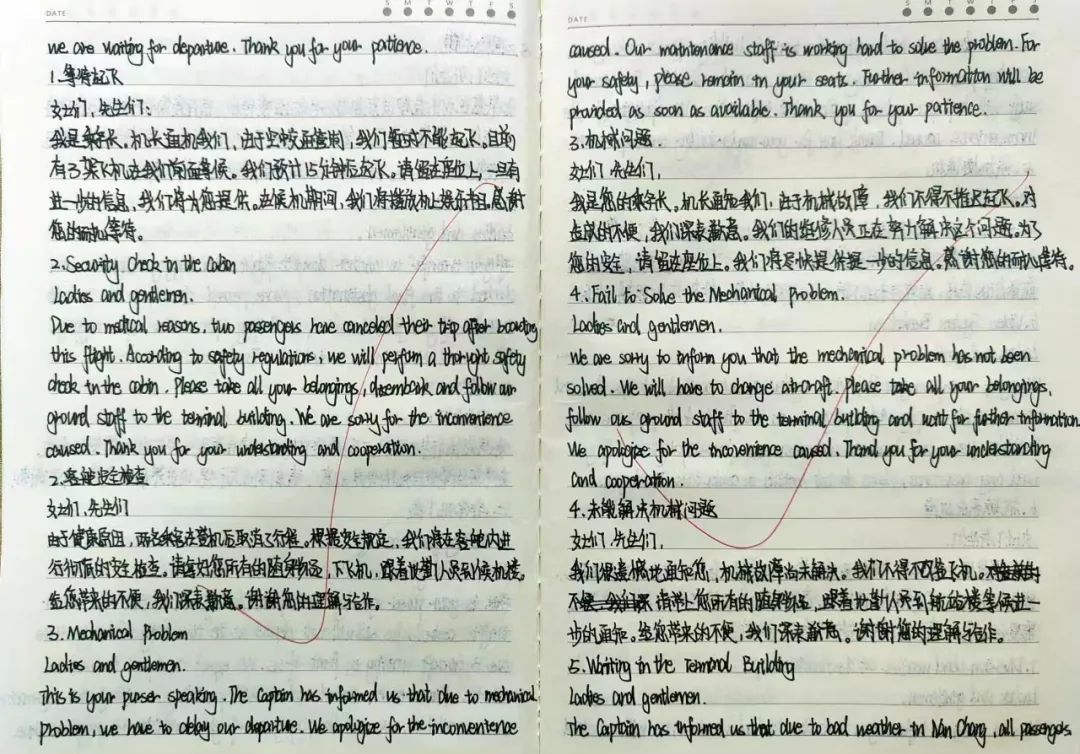 DATE S M T W T F S
we are waiting for departure. Thank you for your patience.
1.等待起飞
女士们,先生们:
我是乘务长。机长通知我们,由于空中交通管制,我们暂时不能起飞。目前
有3架飞机在我们前面等候。我们预计15分钟后起飞。请留在座位上,一旦有
进一步的信息,我们将为您提供。在候机期间,我们将播放机上娱乐节目。感谢
您的耐心等待。
2.Security Check in the Cabin
Ladies and gentlemen.
Due to medical reasons, two passengers have canceled their trip after boarding
this flight. According to safety regulations, we will perform a thorught safety
check in the cabin. Please take all your belongings, disembark and follow our
ground staff to the terminal building. We are sorry for the inconvenience
caused. Thank you for your understanding and cooperation.
2.客舱安全检查
女士们,先生们
由于健康原因,两名乘客在登机后取消了行程。根据安全规定,我们将在客舱内进
行彻底的安全检查。请拿好您所有的随身物品,下飞机,跟着地勤人员到候机楼。
给您带来的不便,我们深表歉意。谢谢您的理解与合作。
3. Mechanical Problem
Ladies and gentlemen.
This is your purser speaking. The Captain has informed us that due to mechanical
problem, we have to delay our departure. We apologize for the inconvenience
DATE S M T W T F S
caused. Our maintenance staff is working hard to solve the problem. For
your safety, please remain in your seats. Further information will be
provided as soon as available. Thank you for your patience.
3.机械问题
女士们,先生们,
我是您的乘务长。机长通知我们,由于机械故障,我们不得不推迟起飞。对
造成的不便,我们深表歉意。我们的维修人员正在努力解决这个问题。为了
您的安全,请留在座位上。我们将尽快提供进一步的信息。感谢您的耐心等待。
4. Fail to Solve the Mechanical problem.
Ladies and gentlemen.
We are sorry to inform you that the mechanical problem has not been
solved. We will have to change aircraft. Please take all your belongings,
follow our ground staff to the terminal building and wait for further information
We apologize for the incovenience caused. Thand you for your understanding
and cooperation
4.未能解决机械问题
女士们,先生们,
我们很遗憾地通知您,机械故障尚未解决。我们不得不换飞机。
不便,我们深 请带上您所有的随身物品,跟着地勤人员到航站楼等候进一
步的通知。给您带来的不便,我们深表歉意。谢谢您的理解与合作。
5. Waiting in the Terminal Building
Ladies and gentlemen
The Captain has informed us that due to bad weather in Nan Chang, all passengers